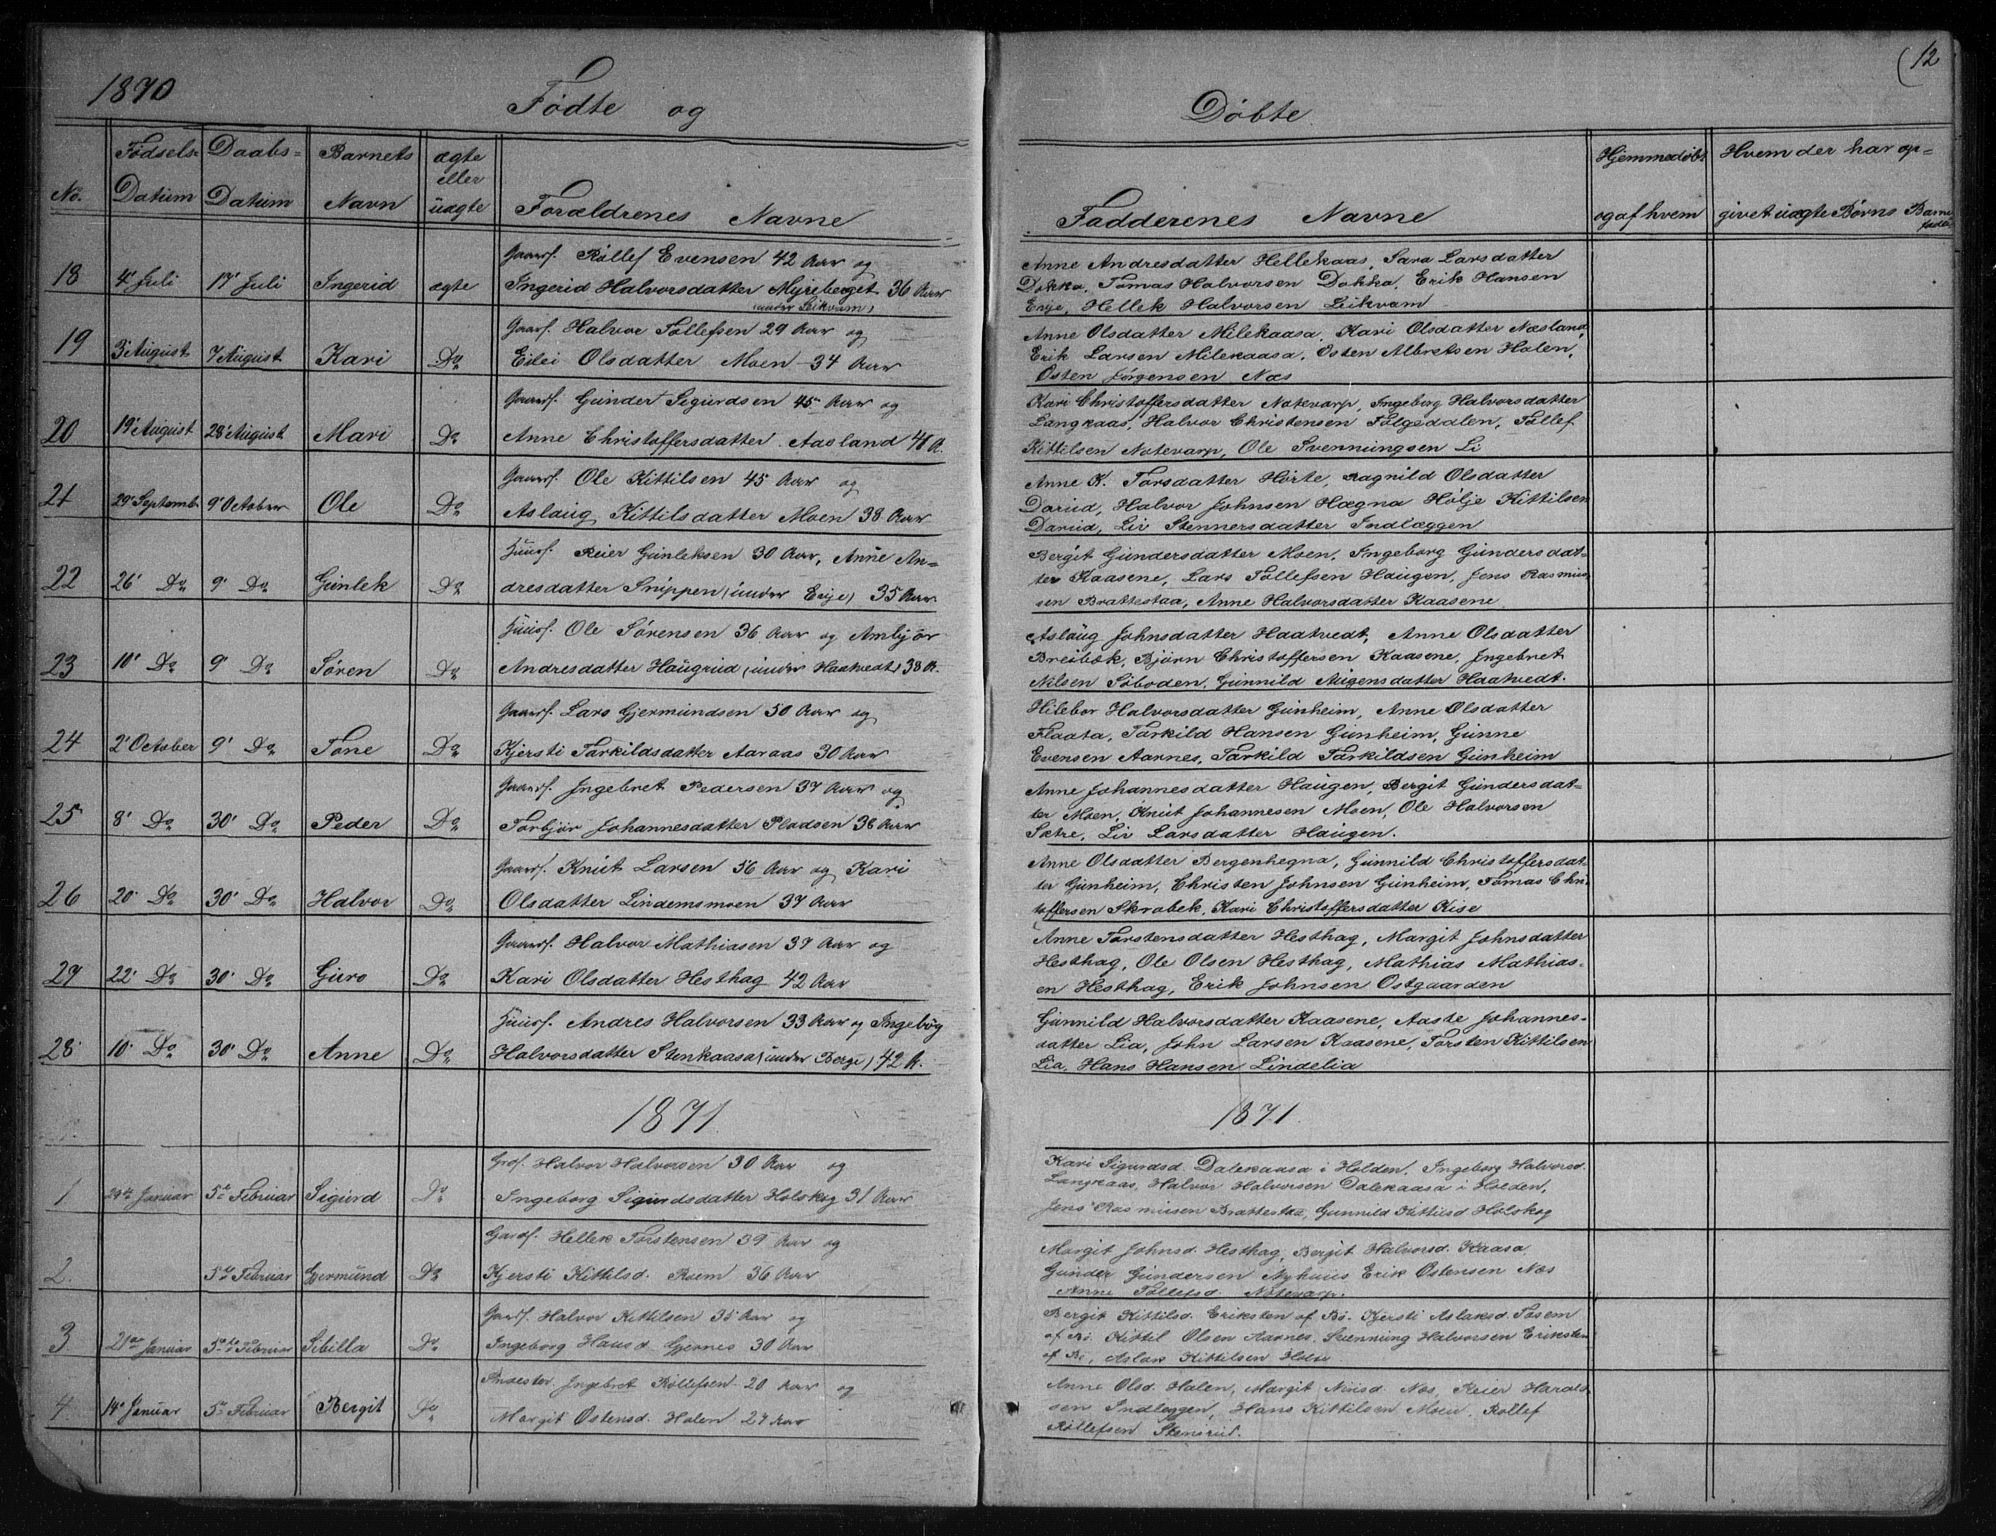 (12
1870
Fødte og Døbte
No.
Fødsels-
Datum
Daabs-
Datum
Barnets
Navn
ægte
eller
uægte
Forældrenes Navne
Fadderenes Navne
Hjemmedøbt
og af hvem
Hvem der har op-
givet uægte Børns Barne
fader
18 4' Juli 17' Juli Ingerid ægte
Gaardf. Rollef Evensen 42 Aar og
Ingerid Halvorsdatter Myreberget 36 Aar
(under Leikvam)
Anne Andresdatter Hellekaas, Sara Larsdatter
Dokka, Tomas Halvorsen Dokka, Erik Hansen
Erije, Hellek Halvorsen Leikvam
19 3' August 7 August Kari Do
Gaardf. Halvor Tollefsen 29 Aar og
Eilei Olsdatter Moen 34 Aar
Anne Olsdatter Milekaasa, Kari Olsdatter Næsland,
Erik Larsen Milekaasa, Osten Albretsen Holen,
Osten Jørgensen Næs
20 19' August 28' August Mari Do
Gaardf. Gunder Sigurdsen 45 Aar og
Anne Christoffersdatter Aasland 41 A.
Kari Christoffersdatter Notevarp, Ingeborg Halvorsdatter
Langkaas, Halvor Christensen Følgedalen, Tollef
Kittilsen Notevarp, Ole Svenningsen Li
21 29' Septemb 9' October Ole Do
Gaardf. Ole Kittilsen 45 Aar og
Aslaug Kittilsdatter Moen 38 Aar
Anne K. Torsdatter Hørte, Ragnild Olsdatter
Darud, Halvor Johnsen Hægna Hølje Kittilsen
Darud, Liv Stennersdatter Indlæggen
22 26' Do 9' Do Gunlek Do
Huusf. Reier Gunleksen 30 Aar, Anne An-
dresdatter Snippen (under Erije) 35 Aar.
Bergit Gundersdatter Moen, Ingeborg Gundersdat-
ter Kaasene, Lars Tollefsen Haugen, Jens Rasmus-
sen Brattestaa, Anne Halvorsdatter Kaasene
23 10' Do 9' Do Søren Do
Huusf. Ole Sørensen 36 Aar og Ambjør
Andresdatter Haugrud (under Haatvedt) 38 A.
Aslaug Johnsdatter Haatvedt, Anne Olsdatter
Breibæk, Bjørn Christoffersen Kaasene, Ingebret
Nilsen Søboden, Gunnild Augensdatter Haatvedt.
24 2' October 9' Do Tone Do
Gaardf. Lars Gjermundsen 50 Aar og
Kjersti Tarkildsdatter Aaraas 30 Aar
Hilebor Halvorsdatter Gunheim, Anne Olsdatter
Flaata, Tarkild Hansen Gunheim, Gunne
Evensen Aarnes, Tarkild Tarkildsen Gunheim
25 8' Do 30' Do Peder Do
Gaardf. Ingebret Pedersen 37 Aar og
Torbjør Johannesdatter Pladsen 38 Aar
Anne Johannesdatter Haugen, Bergit Gundersdat-
ter Moen, Knut Johannesen Moen, Ole Halvorsen
Sætre, Liv Larsdatter Haugen.
26 20' Do 30' Do Halvor Do
Gaardf. Knut Larsen 56 Aar og Kari
Olsdatter Lindemsmoen 37 Aar
Anne Olsdatter Bergenhegna, Gunnild Christoffersdat-
ter Gunheim, Christen Johnsen Gunheim, Tomas Chri-
stoffersen Skrabek, Kari Christoffersdatter Kise
27 22' Do 30' Do Guro Do
Gaardf. Halvor Mathiasen 37 Aar og
Kari Olsdatter Hesthag 42 Aar
Anne Torstensdatter Hesthag, Margit Johnsdatter
Hesthag, Ole Olsen Hesthag, Mathias Mathias-
en Hesthag, Erik Johnsen Ostgaarden
28 10' Do 30' Do Anne Do
Huusf. Andres Halvorsen 33 Aar og Ingebøg
Halvorsdatter Stenkaasa (under Berge) 42 A.
Gunnild Halvorsdatter Kaasene, Aaste Johannes-
datter Lia, John Larsen Kaasene, Torsten Kittilsen
Lia, Hans Hansen Lindelia
1871. 1871.
1 29de Januar 5te Februar Sigurd Do
Grdf. Halvor Halvorsen 30 Aar og
Ingeborg Sigurdsdatter Holskog 31 Aar
Kari Sigurdsd. Dalekaasa i Holden, Ingeborg Halvorsd.
Langkaas, Halvor Halvorsen Dalekaasa i Holden,
Jens Rasmusen Brattestaa, Gunnild Kittilsd Holskog
2. 5te Februar Gjermund Do
Gardf. Hellek Torstensen 39 Aar og
Kjersti Kittilsd. Roem 36 Aar
Margit Johnsd. Hesthag, Bergit Halvorsd. Kaasa
Gunder Gundersen Nyhuus Erik Ostensen Næs
Anne Tollefsd. Notevarp.
3 21de Januar 5te Februar Sibilla Do
Gardf. Halvor Kittilsen 35 Aar og
Ingeborg Hansd. Gjernes 30 Aar
Bergit Kittilsd. Eriksten af Bø. Kjersti Aslaksd Tosem
af Bø. Kittil Olsen Aarnes, Svenning Halvorsen Eriksten
af Bø, Aslak Kittilsen Holte
4 14' Januar 5te Februar Bergit Do
Inderster Ingebret Rollefsen 20 Aar og
Margit Ostensd. Holen 27 Aar
Anne Olsd. Halen, Margit Niisd. Næs, Reier Harald-
sen Indleggen, Hans Kittilsen Moen, Rollef
Rollefsen Stensrud.